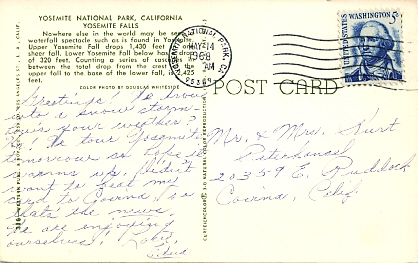 YOSEMITE NATIONAL PARK, CALIFORNIA
YOSEMITE FALLS
Nowhere else in the world may be seen a
waterfall spectacle such as is found in Yosemite.
Upper Yosemite Fall drops 1,430 feet in one
sheer fall. Lower Yosemite Fall below has a drop
of 320 feet. Counting a series of cascades in
between the total drop from the crest of the
upper fall to the base of the lower fall, is 2,425
feet.
COLOR PHOTO BY DOUGLAS WHITESIDE
MAY 14
1968
AM
UNITED STATES
WASHINGTON
5¢
POST CARD
Greetings! We drove
into a snow storm
your weather?
to tour Yosemite
tomorrow so hope it
warms up. Didn't
want to hear my
to Covina, so
that's the news.
We are enjoying
ourselves. Love,
Mr. & Mrs. Kurt
20359 E. Ruddock
Covina, Calif.